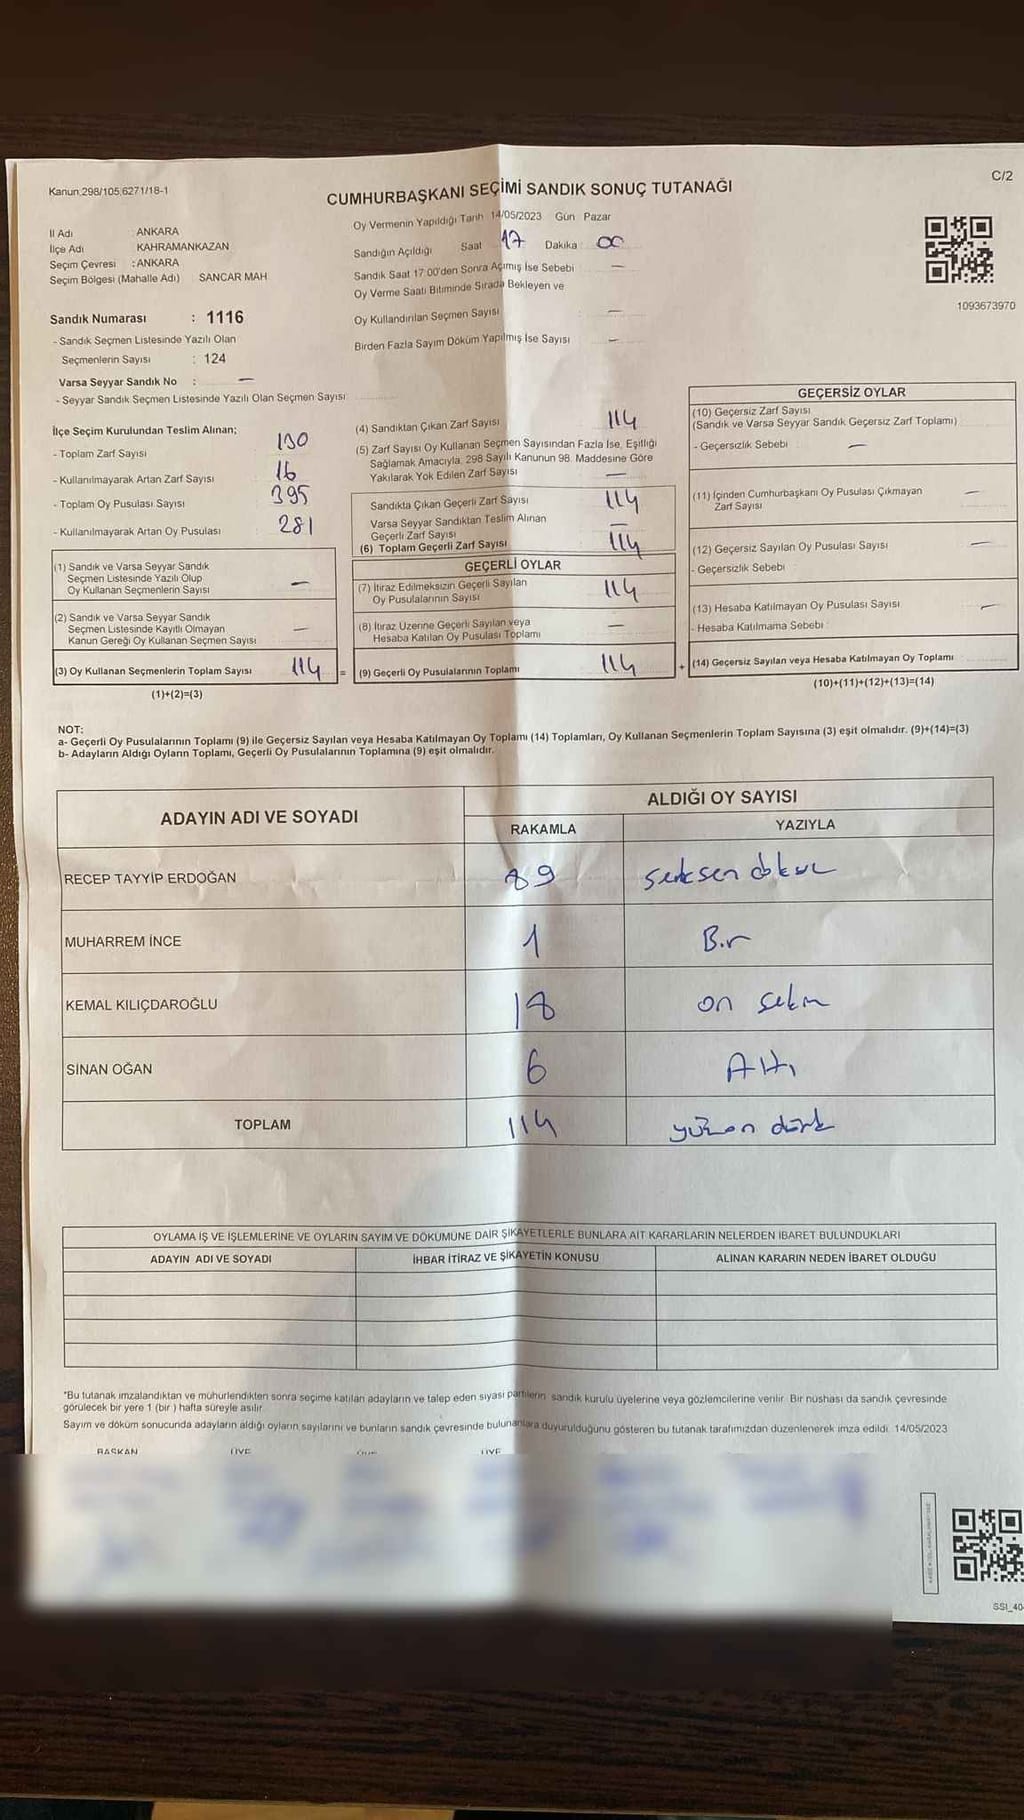 Kanun 298/105,6271/18-1
C/2
CUMHURBAŞKANI SEÇİMİ SANDIK SONUÇ TUTANAĞI
İl Adı : ANKARA
İlçe Adı KAHRAMANKAZAN
Seçim Çevresi : ANKARA
Seçim Bölgesi (Mahalle Adı) SANCAR MAH
Sandık Numarası : 1116
- Sandık Seçmen Listesinde Yazılı Olan
Seçmenlerin Sayısı : 124
Varsa Seyyar Sandık No : —
- Seyyar Sandık Seçmen Listesinde Yazılı Olan Seçmen Sayısı
Oy Vermenin Yapıldığı Tarih 14/05/2023 Gün Pazar
Sandığın Açıldığı Saat 17 Dakika : 00
Sandık Saat 17:00'den Sonra Açımış İse Sebebi —
Oy Verme Saati Bitiminde Sırada Bekleyen ve
Oy Kullandırılan Seçmen Sayısı : —
Birden Fazla Sayım Döküm Yapılmış İse Sayısı —
1093673970
İlçe Seçim Kurulundan Teslim Alınan;
- Toplam Zarf Sayısı 130
- Kullanılmayarak Artan Zarf Sayısı 16
- Toplam Oy Pusulası Sayısı 395
- Kullanılmayarak Artan Oy Pusulası 281
(1) Sandık ve Varsa Seyyar Sandık
Seçmen Listesinde Yazılı Olup
Oy Kullanan Seçmenlerin Sayısı —
(2) Sandık ve Varsa Seyyar Sandık
Seçmen Listesinde Kayıtlı Olmayan
Kanun Gereği Oy Kullanan Seçmen Sayısı —
(3) Oy Kullanan Seçmenlerin Toplam Sayısı 114 =
(1)+(2)=(3)
(4) Sandıktan Çıkan Zarf Sayısı 114
(5) Zarf Sayısı Oy Kullanan Seçmen Sayısından Fazla İse, Eşitliği
Sağlamak Amacıyla, 298 Sayılı Kanunun 98. Maddesine Göre
Yakılarak Yok Edilen Zarf Sayısı —
Sandıkta Çıkan Geçerli Zarf Sayısı 114
Varsa Seyyar Sandıktan Teslim Alınan
Geçerli Zarf Sayısı —
(6) Toplam Geçerli Zarf Sayısı 114
GEÇERLİ OYLAR
(7) İtiraz Edilmeksizin Geçerli Sayılan
Oy Pusulalarının Sayısı 114
(8) İtiraz Üzerine Geçerli Sayılan veya
Hesaba Katılan Oy Pusulası Toplamı —
(9) Geçerli Oy Pusulalarının Toplamı 114 +
GEÇERSİZ OYLAR
(10) Geçersiz Zarf Sayısı
(Sandık ve Varsa Seyyar Sandık Geçersiz Zarf Toplamı)
- Geçersizlik Sebebi —
(11) İçinden Cumhurbaşkanı Oy Pusulası Çıkmayan
Zarf Sayısı —
(12) Geçersiz Sayılan Oy Pusulası Sayısı —
- Geçersizlik Sebebi
(13) Hesaba Katılmayan Oy Pusulası Sayısı —
- Hesaba Katılmama Sebebi
(14) Geçersiz Sayılan veya Hesaba Katılmayan Oy Toplamı
(10)+(11)+(12)+(13)=(14)
NOT:
a- Geçerli Oy Pusulalarının Toplamı (9) ile Geçersiz Sayılan veya Hesaba Katılmayan Oy Toplamı (14) Toplamları, Oy Kullanan Seçmenlerin Toplam Sayısına (3) eşit olmalıdır. (9)+(14)=(3)
b- Adayların Aldığı Oyların Toplamı, Geçerli Oy Pusulalarının Toplamına (9) eşit olmalıdır.
ADAYIN ADI VE SOYADI ALDIĞI OY SAYISI
RAKAMLA YAZIYLA
RECEP TAYYİP ERDOĞAN 89 seksen dokuz
MUHARREM İNCE 1 Bir
KEMAL KILIÇDAROĞLU 18 on sekiz
SİNAN OĞAN 6 Altı
TOPLAM 114 yüzon dört
OYLAMA İŞ VE İŞLEMLERİNE VE OYLARIN SAYIM VE DÖKÜMÜNE DAİR ŞİKAYETLERLE BUNLARA AİT KARARLARIN NELERDEN İBARET BULUNDUKLARI
ADAYIN ADI VE SOYADI İHBAR İTİRAZ VE ŞİKAYETİN KONUSU ALINAN KARARIN NEDEN İBARET OLDUĞU
*Bu tutanak imzalandıktan ve mühürlendikten sonra seçime katılan adayların ve talep eden siyasi partilerin sandık kurulu üyelerine veya gözlemcilerine verilir. Bir nüshası da sandık çevresinde
görülecek bir yere 1 (bir ) hafta süreyle asılır.
Sayım ve döküm sonucunda adayların aldığı oyların sayılarını ve bunların sandık çevresinde bulunanlara duyurulduğunu gösteren bu tutanak tarafımızdan düzenlenerek imza edildi. 14/05/2023
BAŞKAN ÜYE ÜYE
SSI_40